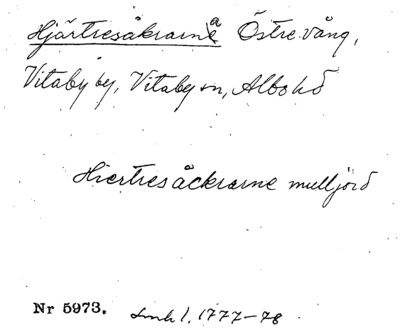 Hjärtresåkrarna Östre vång,
Vitaby by, Vitaby sn, Albo hd
Hiertresåckrarne mulljord
Nr 5973. Lmh 1. 1777-78